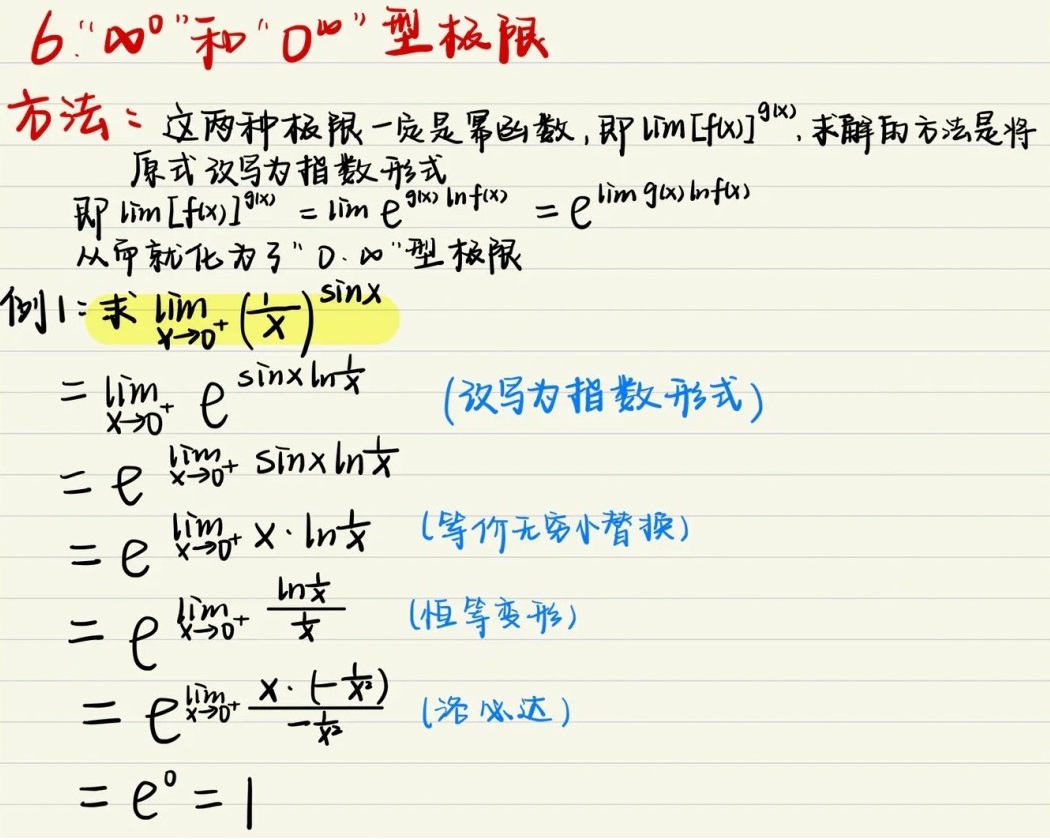 6."∞⁰"和"0^∞"型极限
方法：这两种极限一定是幂函数,即 lim[f(x)]^g(x),求解的方法是将
原式改写为指数形式
即 lim[f(x)]^g(x) = lim e^(g(x) ln f(x)) = e^(lim g(x) ln f(x))
从而就化为了"0·∞"型极限
例1：求 lim_(x→0⁺) (1/x)^sinx
= lim_(x→0⁺) e^(sinx ln 1/x) (改写为指数形式)
= e^(lim_(x→0⁺) sinx ln 1/x)
= e^(lim_(x→0⁺) x·ln 1/x) (等价无穷小替换)
= e^(lim_(x→0⁺) (ln 1/x)/(1/x)) (恒等变形)
= e^(lim_(x→0⁺) (x·(-1/x²))/(-1/x²)) (洛必达)
= e⁰ = 1